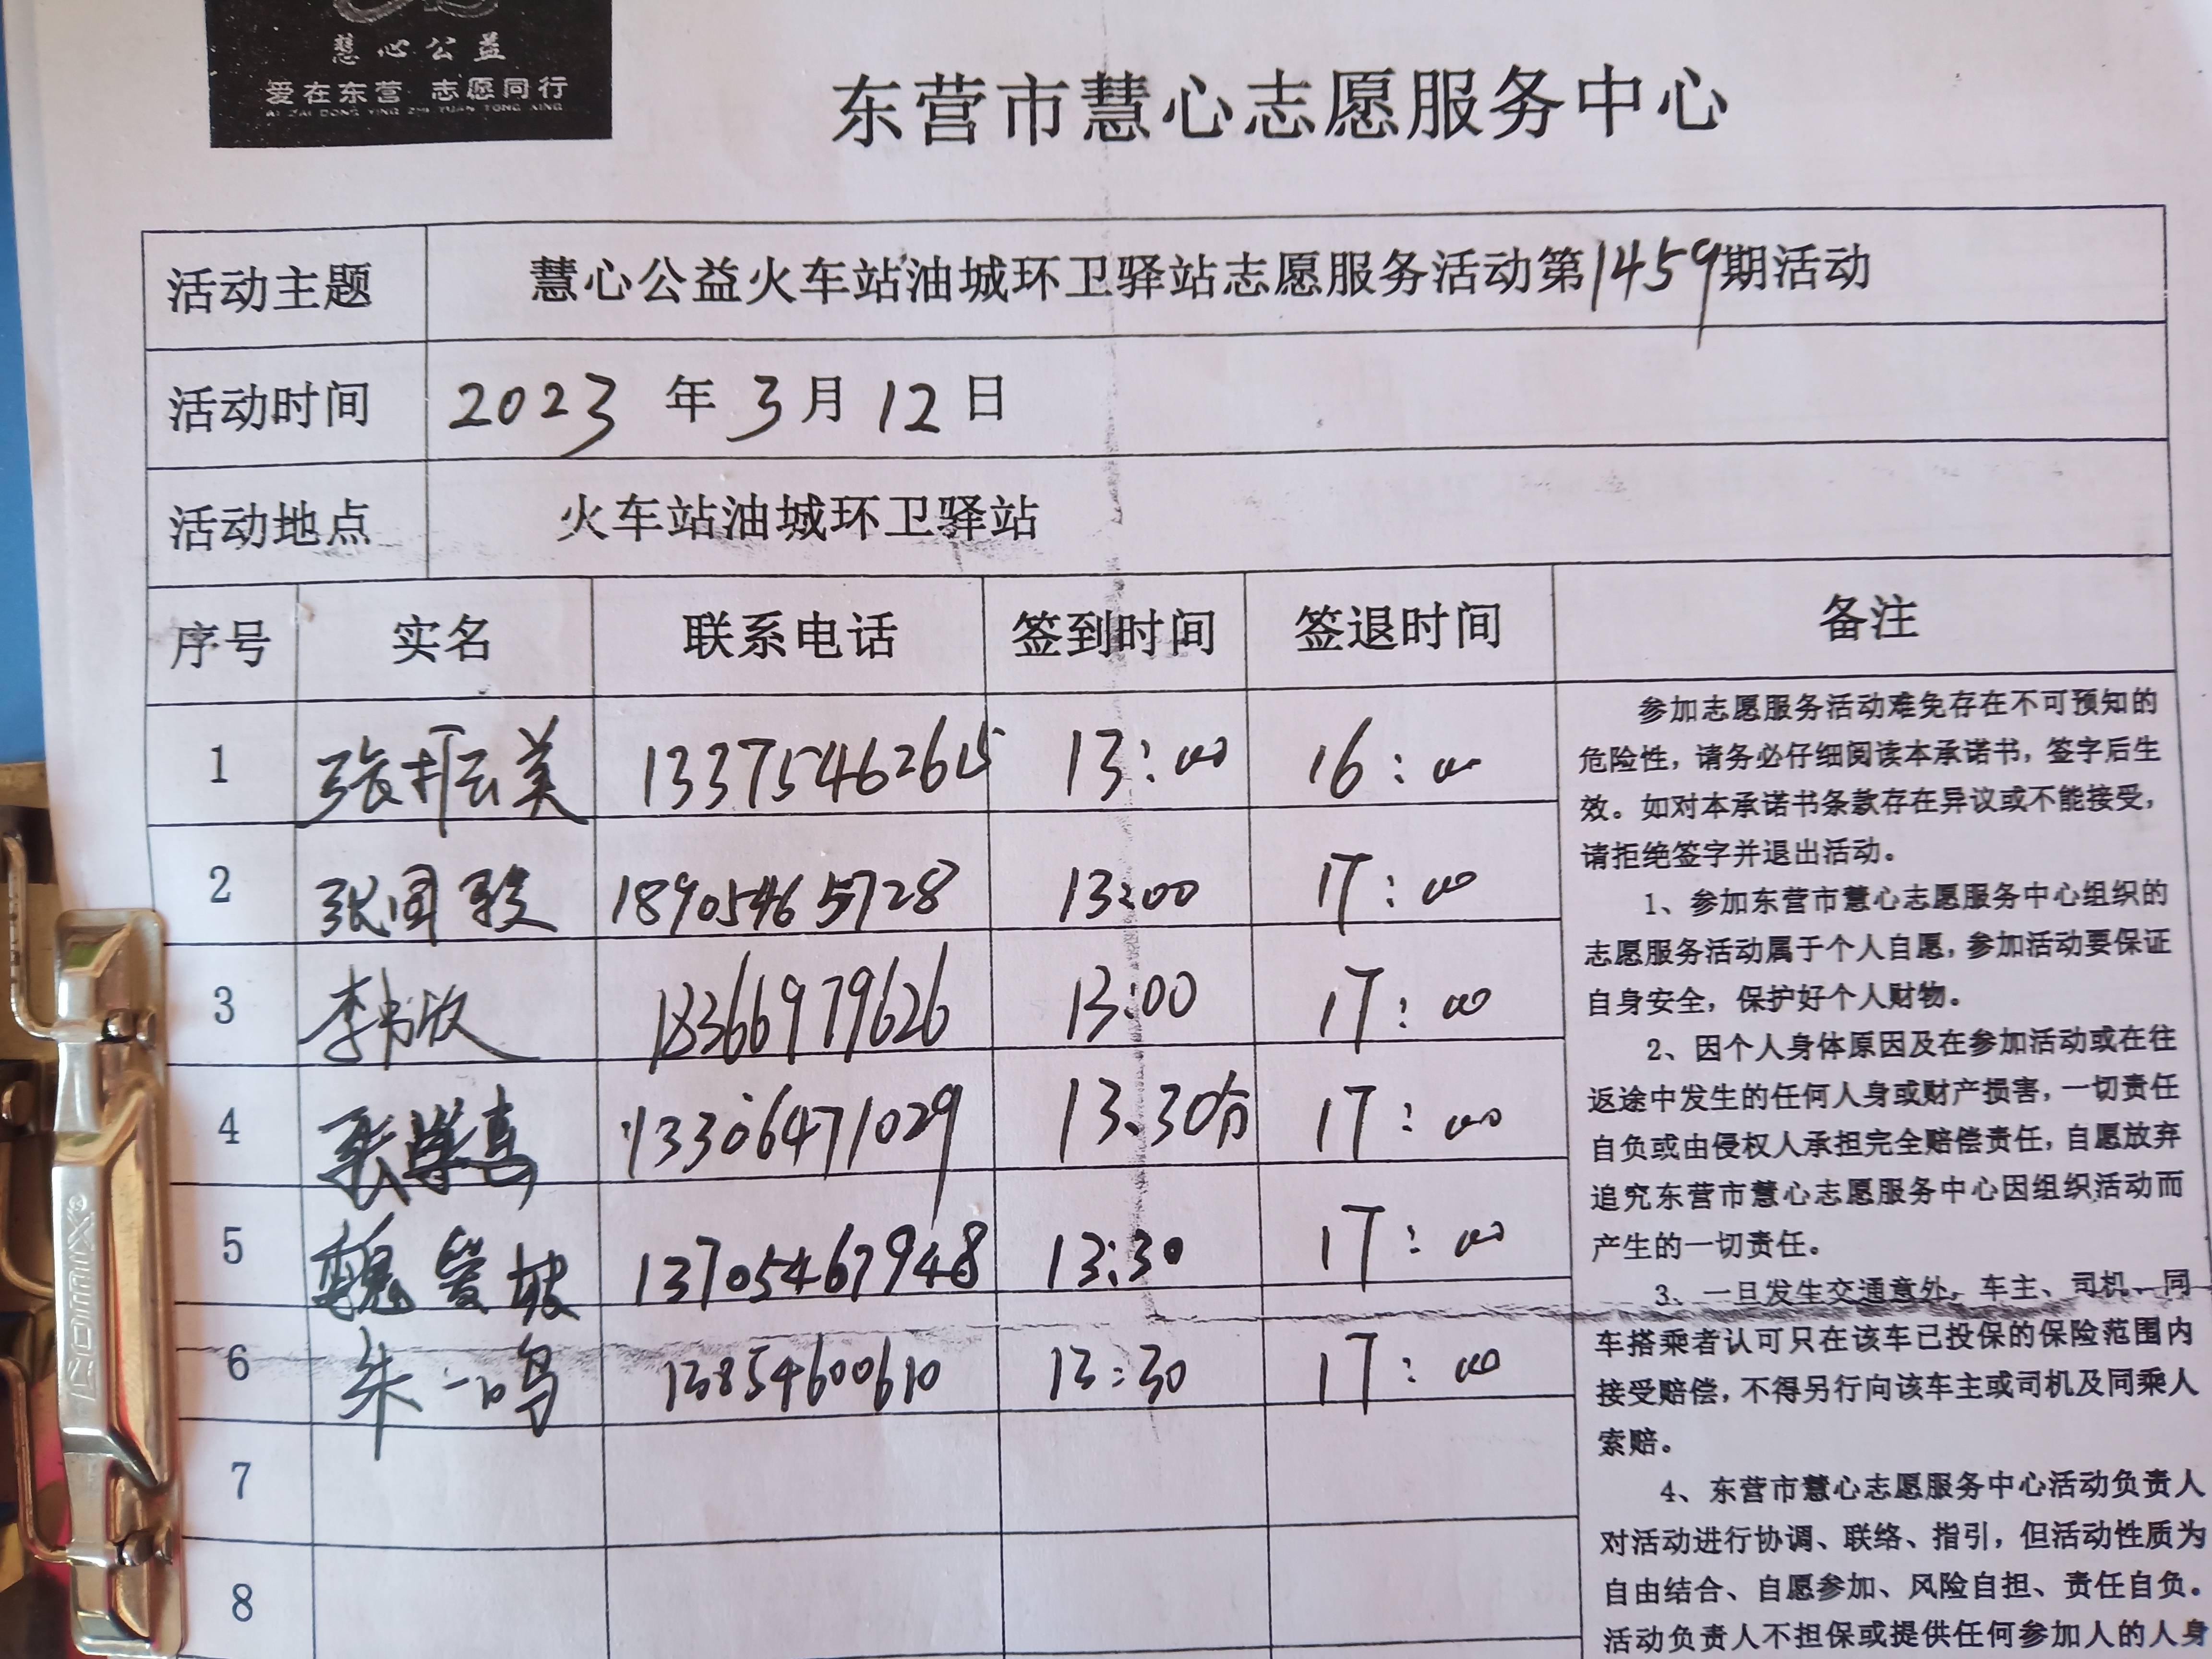 慧心公益
爱在东营 志愿同行
AI ZAI DONG YING ZHI YUAN TONG XING
东营市慧心志愿服务中心
活动主题 慧心公益火车站油城环卫驿站志愿服务活动第1459期活动
活动时间 2023 年 3 月 12 日
活动地点 火车站油城环卫驿站
序号 实名 联系电话 签到时间 签退时间 备注
1 张振美 13375462615 13:00 16:00
2 张国 18905465728 13:00 17:00
3 李书欣 18366979626 13:00 17:00
4 张学惠 13306471029 13.30分 17:00
5 魏爱坡 13705467948 13:30 17:00
6 朱一鸣 13854600610 13:30 17:00
7
8
参加志愿服务活动难免存在不可预知的
危险性，请务必仔细阅读本承诺书，签字后生
效。如对本承诺书条款存在异议或不能接受，
请拒绝签字并退出活动。
1、参加东营市慧心志愿服务中心组织的
志愿服务活动属于个人自愿，参加活动要保证
自身安全，保护好个人财物。
2、因个人身体原因及在参加活动或在往
返途中发生的任何人身或财产损害，一切责任
自负或由侵权人承担完全赔偿责任，自愿放弃
追究东营市慧心志愿服务中心因组织活动而
产生的一切责任。
3、一旦发生交通意外，车主、司机、同
车搭乘者认可只在该车已投保的保险范围内
接受赔偿，不得另行向该车主或司机及同乘人
索赔。
4、东营市慧心志愿服务中心活动负责人
对活动进行协调、联络、指引，但活动性质为
自由结合、自愿参加、风险自担、责任自负。
活动负责人不担保或提供任何参加人的人身
COMIX®